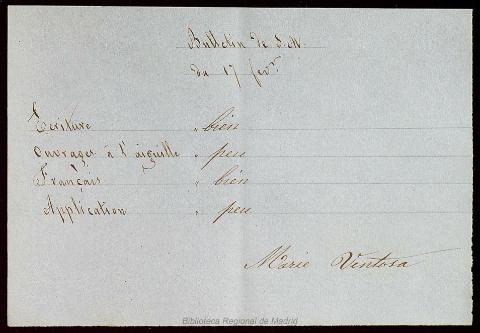 Bulletin de S. M.
du 17 fevr.
Ecriture " bien
Ouvrages à l'aiguille " peu
Français " bien
Application " peu
Marie Ventosa
Biblioteca Regional de Madrid